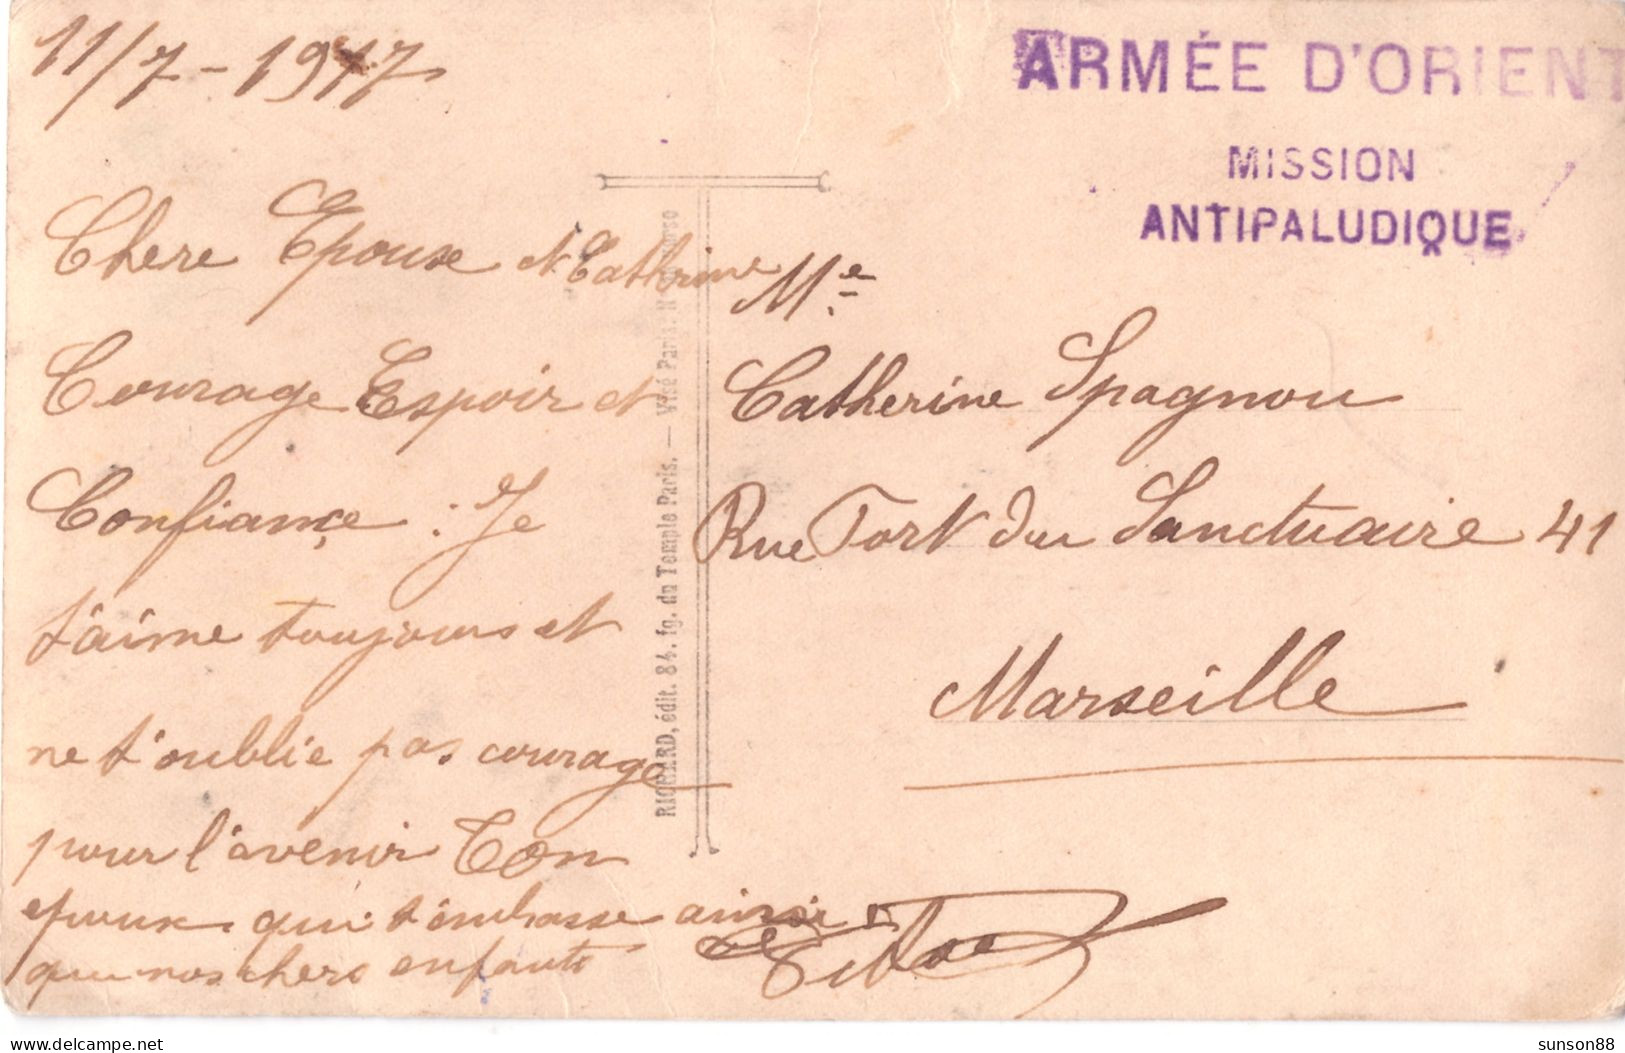 11/7-1917
ARMÉE D'ORIENT
MISSION
ANTIPALUDIQUE
Chere Epouse et Cathrine
Courage Espoir et
Confiançe : Je
t'aime toujours et
ne t'oublie pas courage
pour l'avenir Ton
epoux qui t'embrasse ainsi
que nos chers enfants
RICHARD, édit. 84. fg. du Temple Paris. — Visé Paris. N°
Me
Catherine Spagnou
Rue Fort du Sanctuaire 41
Marseille
delcampe.net
sunson88